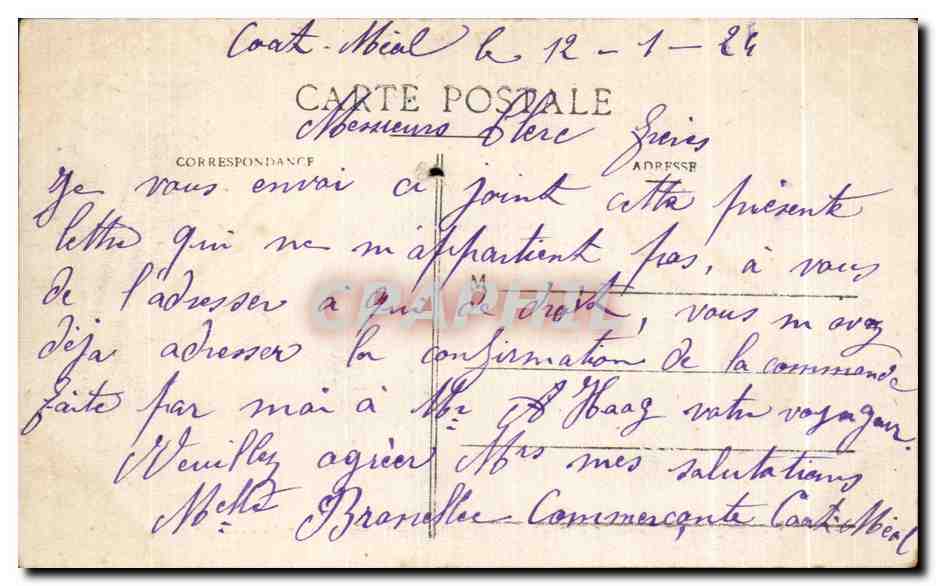 Coat-Méal le 12-1-24
CARTE POSTALE
Messieurs Clerc frères
CORRESPONDANCE ADRESSE
Je vous envoi ci joint cette présente
lettre qui ne m'appartient pas, à vous
de l'adresser à qui de droit, vous m'avez
déja adresser la confirmation de la commande
faite par moi à Mr A Haag votre voyageur.
Veuillez agréer Mrs mes salutations
Melle Commerçante Coat-Méal
CPAPHIL